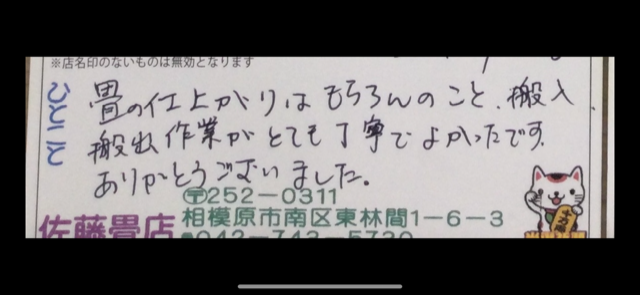 ※店名印のないものは無効となります
ひとこと
畳の仕上がりはもちろんのこと、搬入、
搬出作業がとても丁寧でよかったです。
ありがとうございました。
〒252-0311
佐藤畳店
相模原市南区東林間1-6-3
042-743-5730